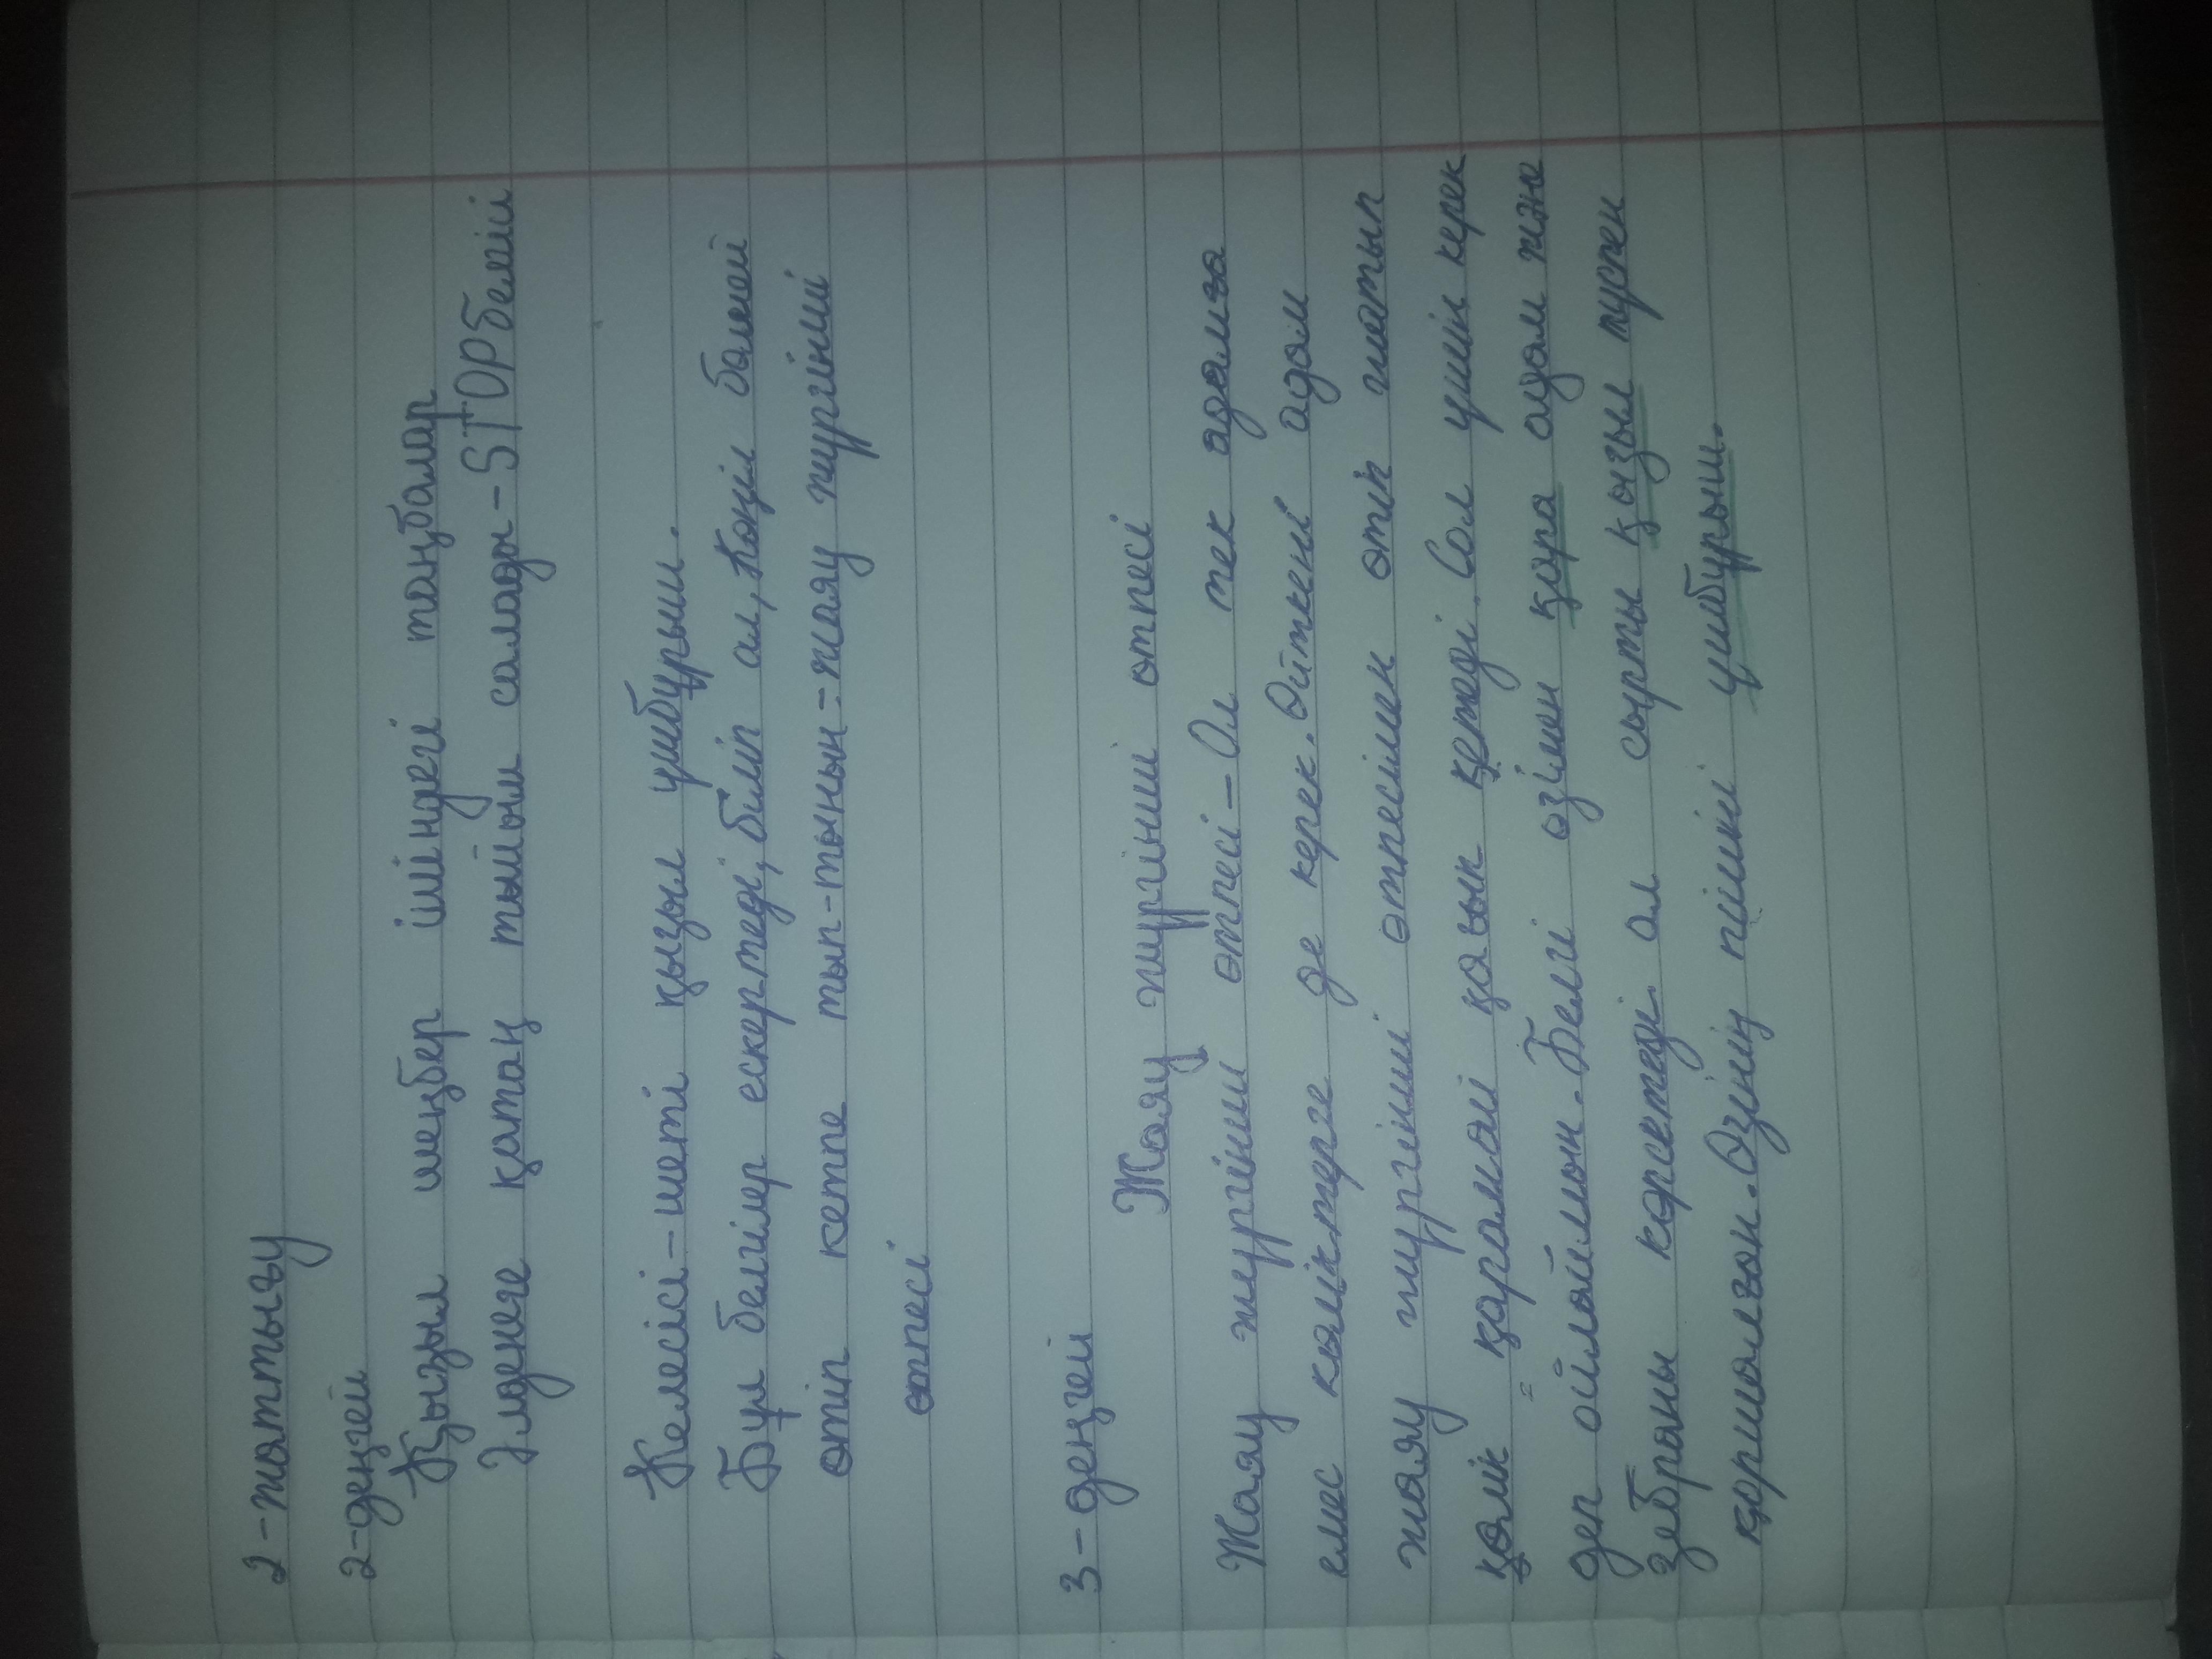 2-жаттығу
2-деңгей
Қызыл шеңбер ішіндегі таңбалар
Әлденеге қатаң тыйым салады-STOPбелгісі
Келесісі-шеті қызыл үшбұрыш.
Бұл белгілер ескертеді, біліп ал, Көңіл бөлмей
өтіп кетпе тып-тыныш=жаяу жүргінші
өтпесі
3-деңгей
Жаяу жүргінші өтпесі
Жаяу жүргінші өтпесі-Ол тек адамға
емес көліктерге де керек. Өйткені адам
жаяу жүргінші өтпесімен өтіп жатып
көлік қарамай қағып кетеді. Сол үшін керек
деп ойлаймын. Белгі өзімен қара адам жəне
зебраны көрсетеді ал сырты қызыл түспен
қоршалған. Өзінің пішіні үшбұрыш.